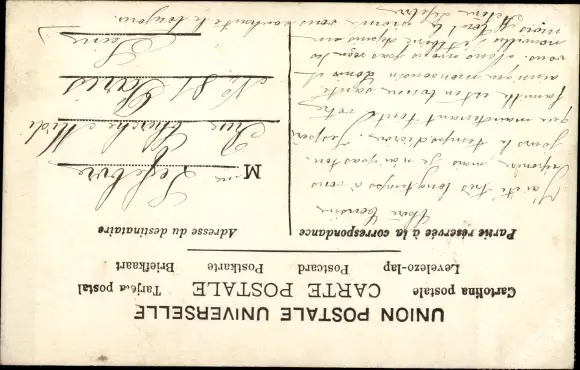 UNION POSTALE UNIVERSELLE
Cartolina postale CARTE POSTALE Tarjeta postal
Levelezo-lap Postcard Postkarte Briefkaart
Partie réservée à la correspondance
Adresse du destinataire
Chère Cousine
J'ai été très longtemps à vous
répondre mais je n'ai pas ton
jours le temps J'espère
que maintenant toute votre
famille est en bonne santé
ainsi que mon cousin et
vous. nous
nouvelles d'Albert depuis un
mois
Victor Lefebvre
vous souhaite le toujours.
Mme Lefebvre
Rue Cherche Midi
No 81 Paris
Seine